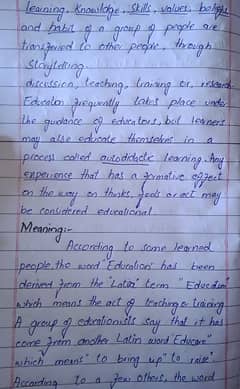 learning, Knowledge, Skills, values, beliefs
and habit of a group of people are
transferred to other people, through
Storytelling.
discussion, teaching, training or, research
Education frequently takes place under
the guidance of educators, but learners
may also educate themselves in a
process called autodidactic learning. Any
experience that has a formative effect
on the way on thinks, feels or act may
be considered educational
Meaning:-
According to some learned
people, the word "Education" has been
derived from the "Latin" term "Educatum"
which means the act of teaching or training
A group of educationists say that it has
come from another Latin word "Educare"
which means "to bring up" "to raise".
According to a few others, the word